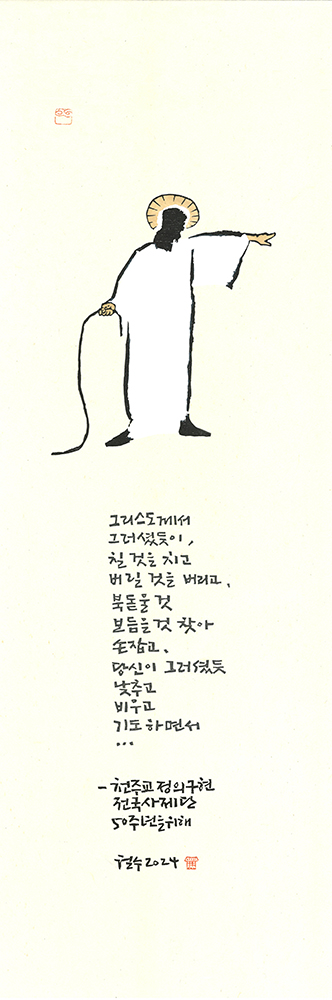 그리스도께서
그러셨듯이,
칠 것을 치고
버릴 것을 버리고,
북돋울 것
보듬을 것 찾아
손잡고,
당신이 그러셨듯
낮추고
비우고
기도하면서
...
- 천주교정의구현
전국사제단
50주년을위해
철수2024